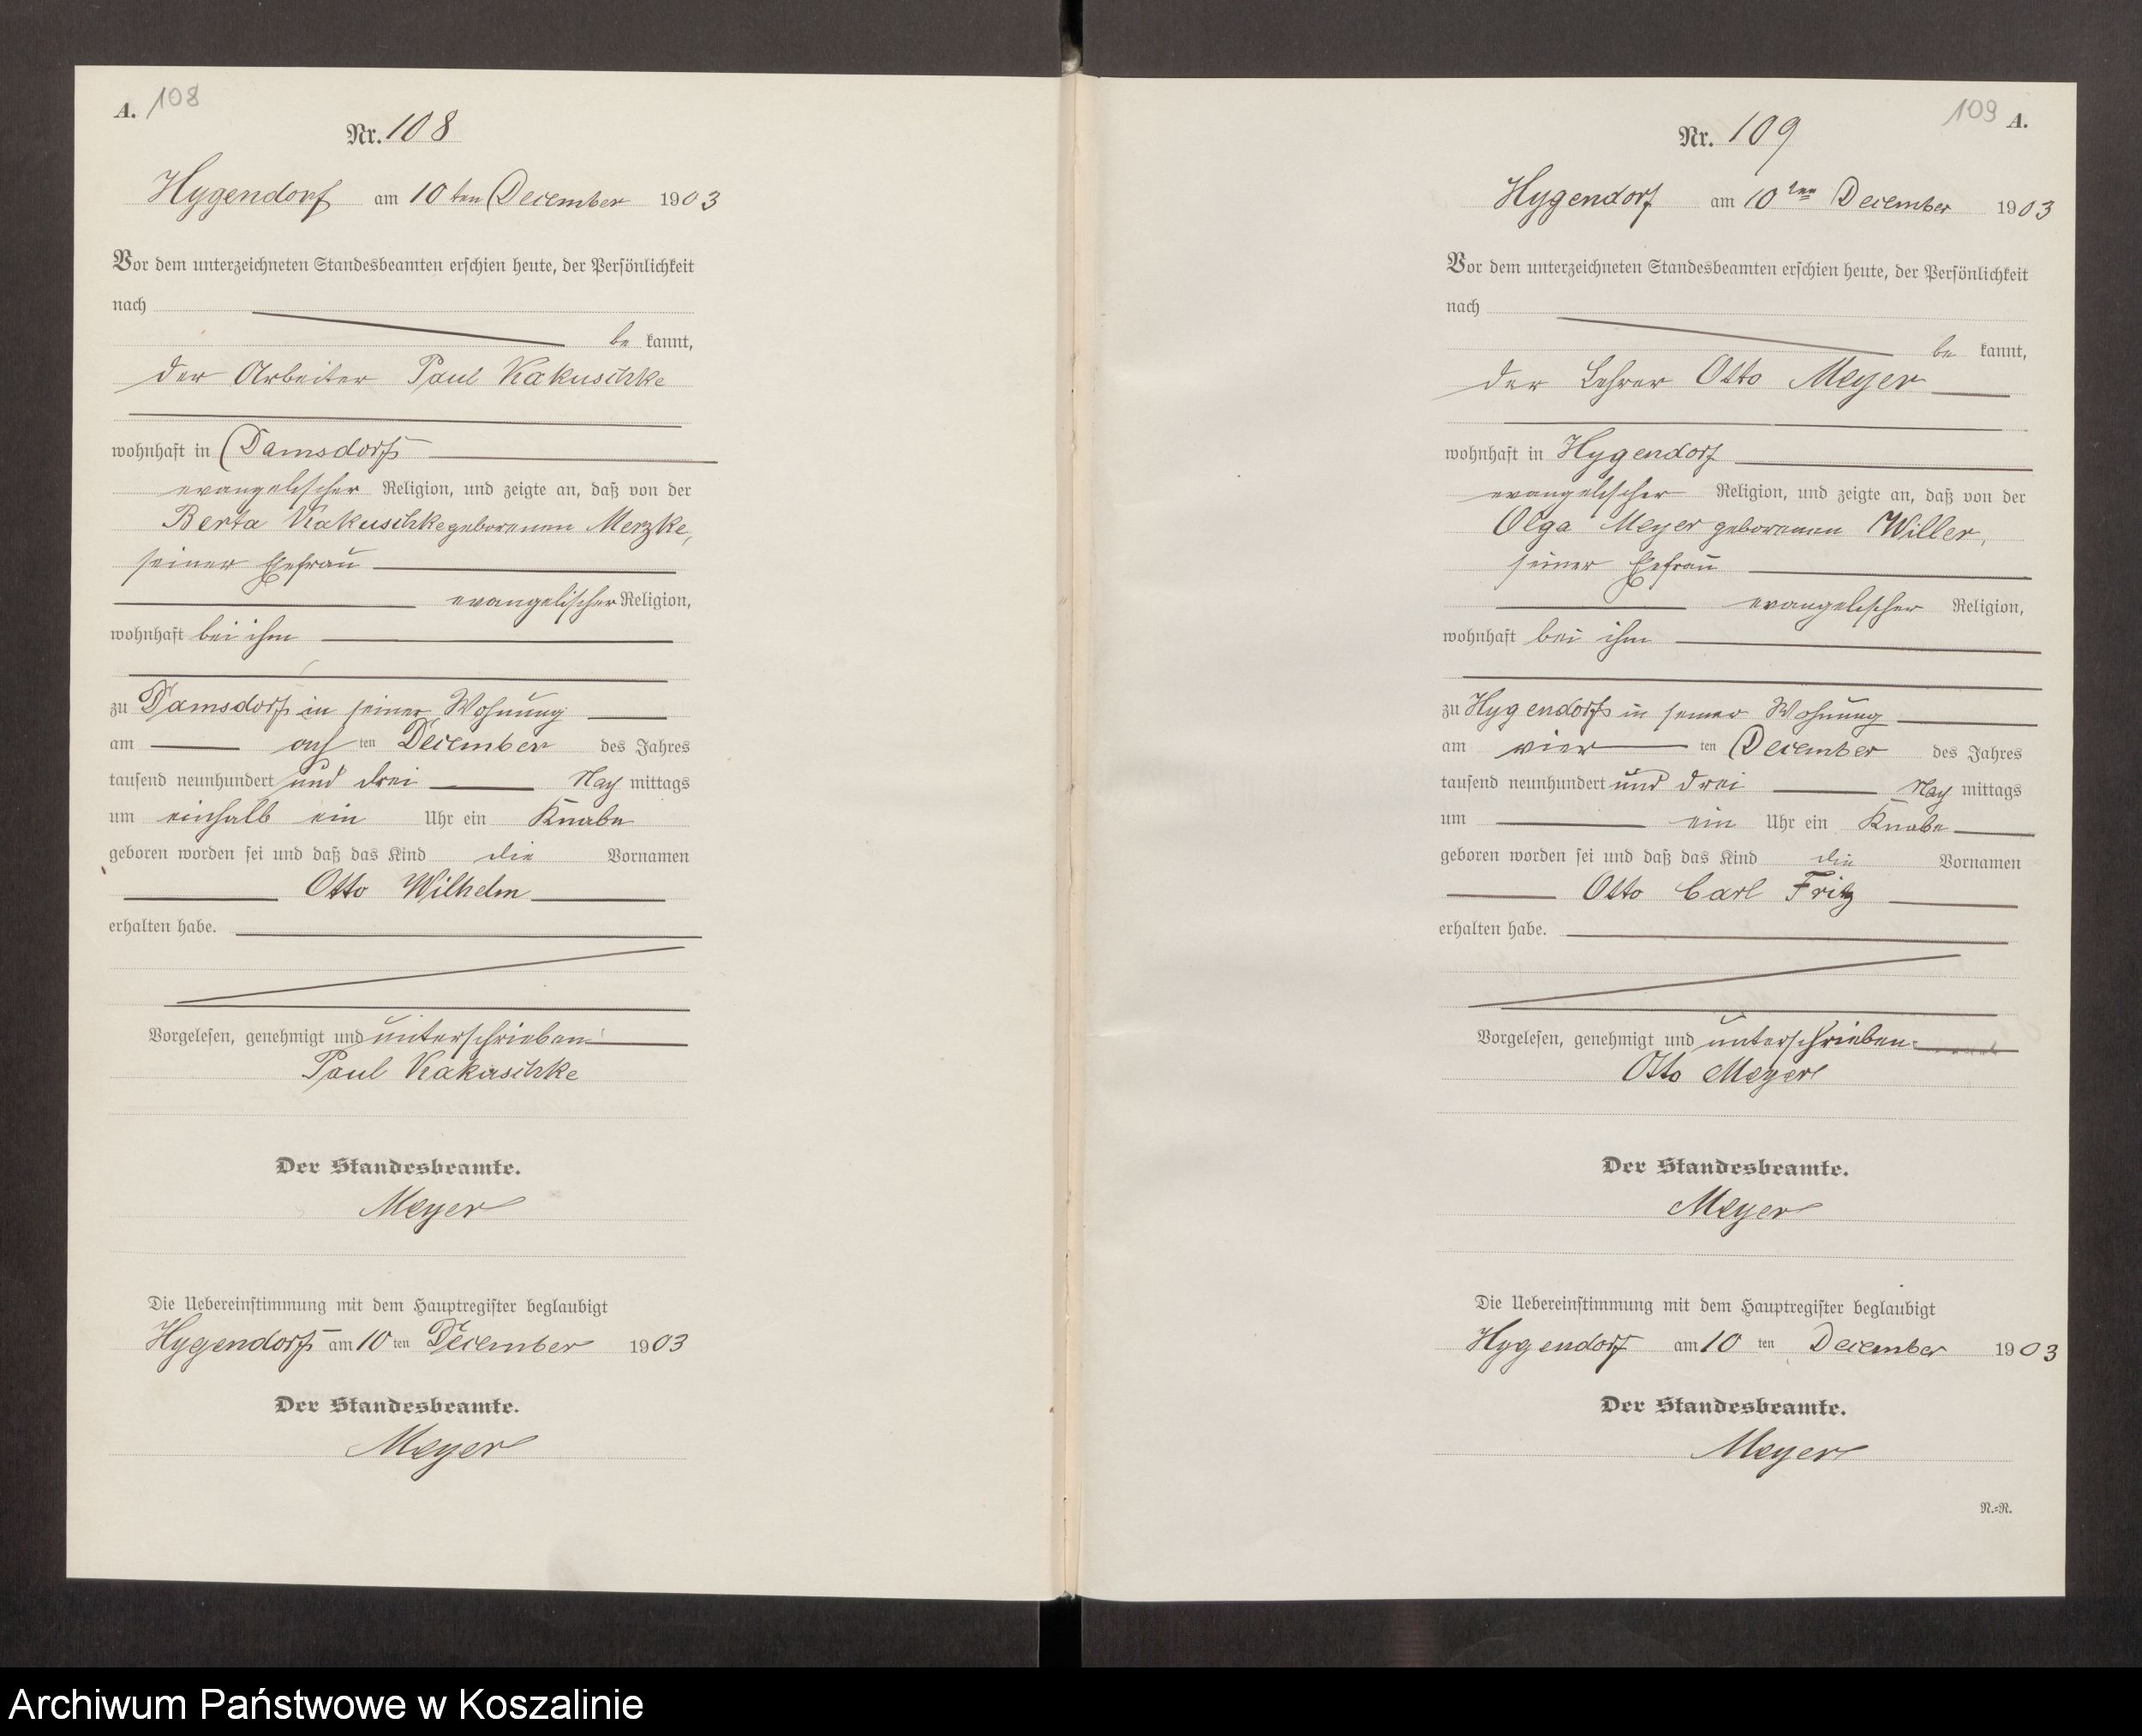 A. 108
Nr. 108
Hygendorf am 10ten December 1903
Vor dem unterzeichneten Standesbeamten erschien heute, der Persönlichkeit
nach
be kannt,
der Arbeiter Paul Kakuschke
wohnhaft in Damsdorf
evangelischer Religion, und zeigte an, daß von der
Berta Kakuschke geborenen Merzke,
seiner Ehefrau
evangelischer Religion,
wohnhaft bei ihm
zu Damsdorf in seiner Wohnung
am ach ten December des Jahres
tausend neunhundert und drei Nach mittags
um einhalb ein Uhr ein Knabe
geboren worden sei und daß das Kind die Vornamen
Otto Wilhelm
erhalten habe.
Vorgelesen, genehmigt und unterschrieben
Paul Kakuschke
Der Standesbeamte.
Meyer
Die Uebereinstimmung mit dem Hauptregister beglaubigt
Hygendorf am 10 ten December 1903
Der Standesbeamte.
Meyer
109 A.
Nr. 109
Hygendorf am 10ten December 1903
Vor dem unterzeichneten Standesbeamten erschien heute, der Persönlichkeit
nach
be kannt,
der Lehrer Otto Meyer
wohnhaft in Hygendorf
evangelischer Religion, und zeigte an, daß von der
Olga Meyer geborenen Willer,
seiner Ehefrau
evangelischer Religion,
wohnhaft bei ihm
zu Hygendorf in seiner Wohnung
am vier ten December des Jahres
tausend neunhundert und drei Nach mittags
um ein Uhr ein Knabe
geboren worden sei und daß das Kind die Vornamen
Otto Carl Fritz
erhalten habe.
Vorgelesen, genehmigt und unterschrieben
Otto Meyer
Der Standesbeamte.
Meyer
Die Uebereinstimmung mit dem Hauptregister beglaubigt
Hygendorf am 10 ten December 1903
Der Standesbeamte.
Meyer
N.=R.
Archiwum Państwowe w Koszalinie